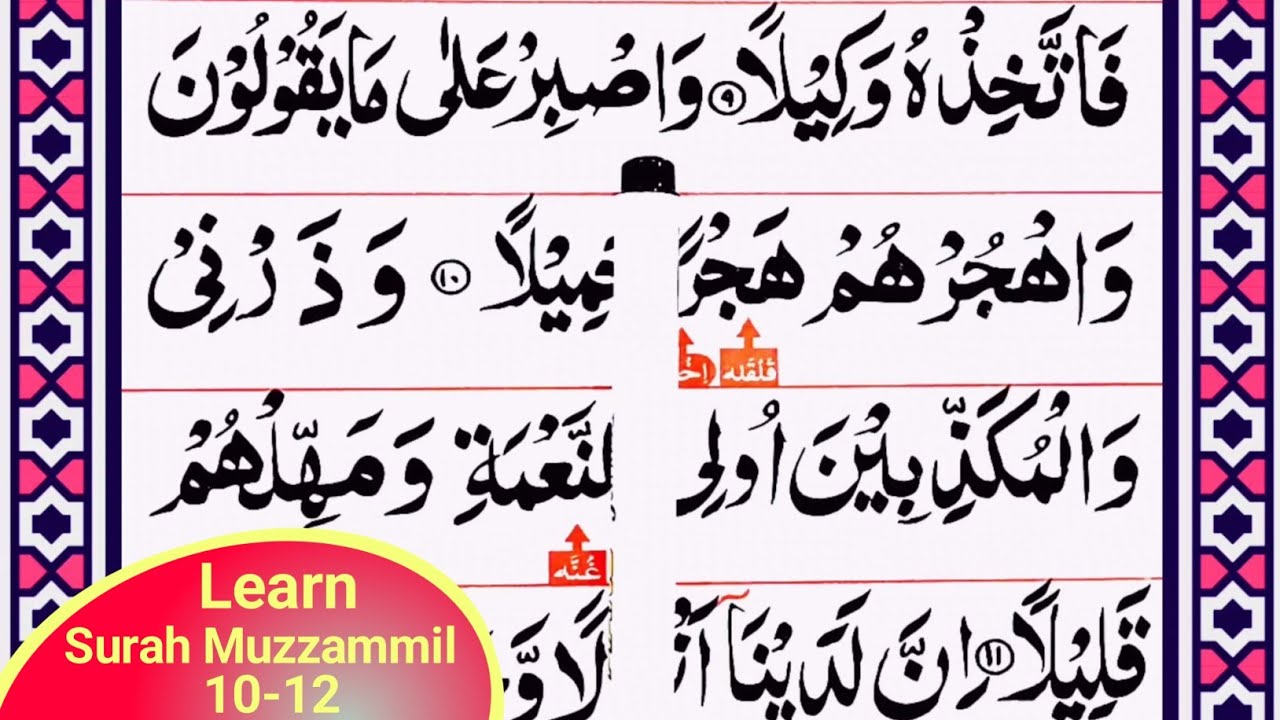 فَاتَّخِذْهُ وَكِيْلًا ۹ وَاصْبِرْ عَلٰى مَا يَقُوْلُوْنَ
وَاهْجُرْهُمْ هَجْرًا ۱۰ وَذَرْنِيْ
قلقله
وَالْمُكَذِّبِيْنَ اُولِى وَمَهِّلْهُمْ
غُنَّه
قَلِيْلًا ۱۱ اِنَّ لَدَيْنَاۤ
Learn
Surah Muzzammil
10-12